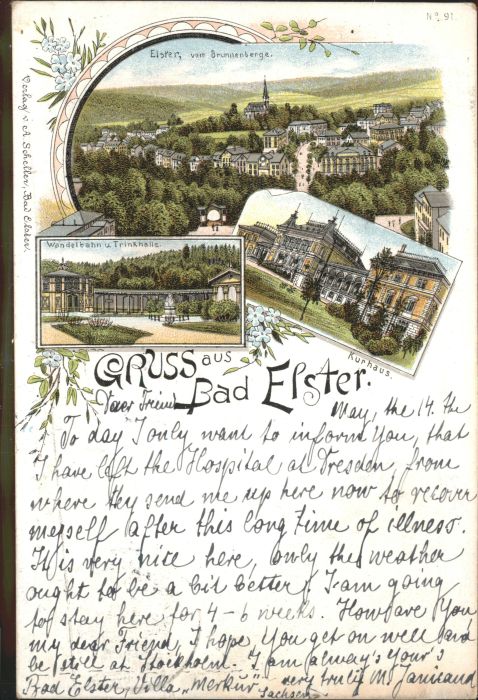 No. 91.
Elster, vom Brunnenberge.
Verlag v. A. Scheller, Bad Elster.
Wandelbahn u. Trinkhalle.
Kurhaus.
Gruss aus
Bad Elster.
Dear Friend
May, the 14. the
To day I only want to inform You, that
I have left the Hospital at Dresden, from
where they send me up here now to recover
myself after this long time of illness.
It is very nice here, only the weather
ought to be a bit better, I am going
to stay here for 4-6 weeks. How are You
my dear Friend, I hope You get on well and
be still at Stockholm. I am always Your's
very truly M.
Bad Elster, Villa „Merkur" Sachsen